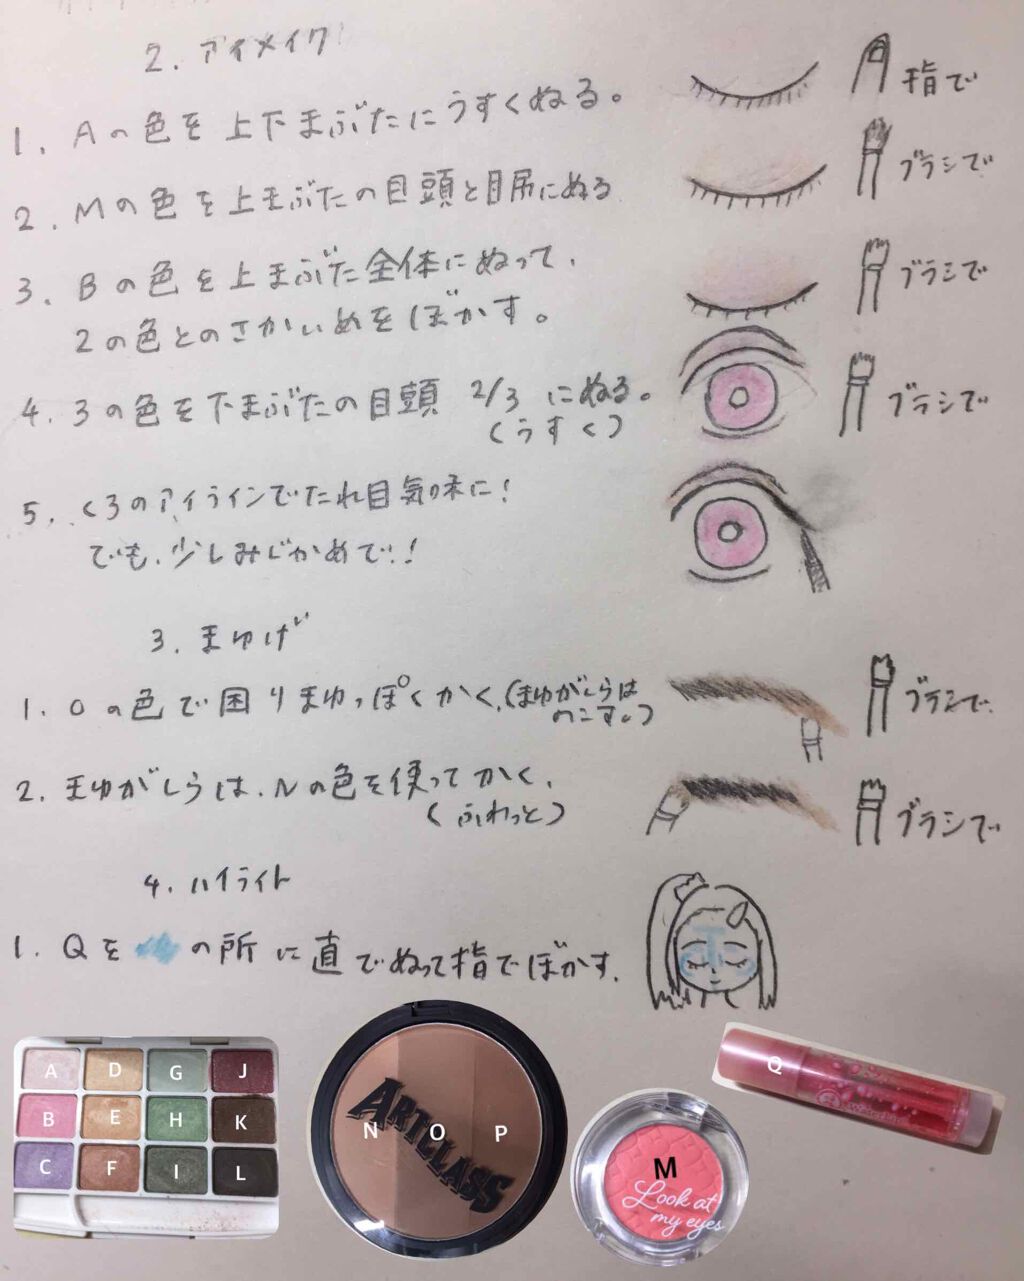 2. アイメイク
1. Aの色を上下まぶたにうすくぬる。
指で
2. Mの色を上まぶたの目頭と目尻にぬる
ブラシで
3. Bの色を上まぶた全体にぬって、
2の色とのさかいめをぼかす。
ブラシで
4. 3の色を下まぶたの目頭 2/3 にぬる。
(うすく)
ブラシで
5. くろのアイラインでたれ目気味に!
でも、少しみじかめで!
3. まゆげ
1. Oの色で困りまゆっぽくかく、(まゆがしらは
のこす。)
ブラシで
2. まゆがしらは、Nの色を使ってかく、
(ふわっと)
ブラシで
4. ハイライト
1. Qを の所に直でぬって指でぼかす.
A D G J
B E H K
C F I L
ARTCLASS
N O P
M
Look at
my eyes
Q